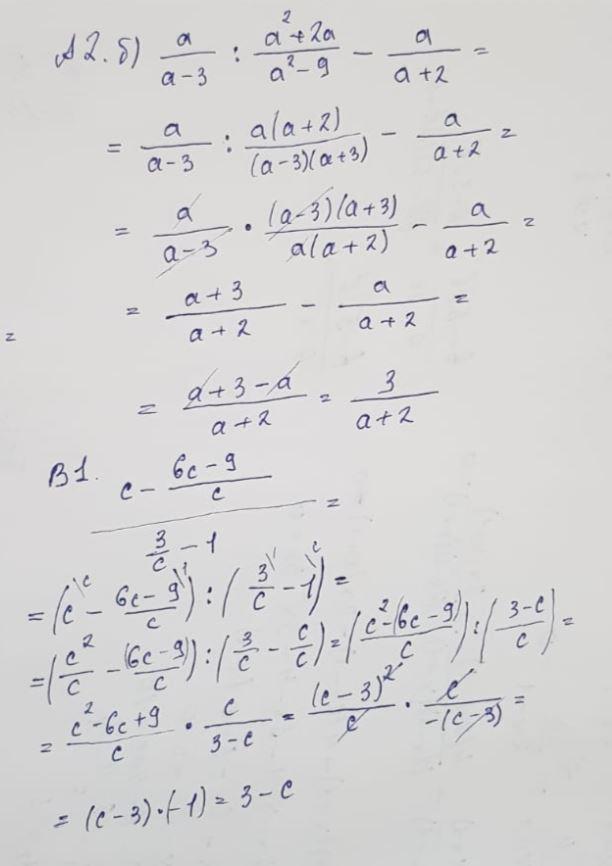 A2.б) a/(a-3) : (a²+2a)/(a²-9) - a/(a+2) =
= a/(a-3) : a(a+2)/((a-3)(a+3)) - a/(a+2) =
= a/(a-3) · (a-3)(a+3)/(a(a+2)) - a/(a+2) =
= (a+3)/(a+2) - a/(a+2) =
=
= (a+3-a)/(a+2) = 3/(a+2)
B1. (c - (6c-9)/c)/(3/c - 1) =
= (c\c - (6c-9)/c \1) : (3/c \1 - 1\c) =
= (c²/c - (6c-9)/c) : (3/c - c/c) = (c²-(6c-9)/c) : ((3-c)/c) =
= (c²-6c+9)/c · c/(3-c) = (c-3)²/c · c/(-(c-3)) =
= (c-3)·(-1) = 3-c